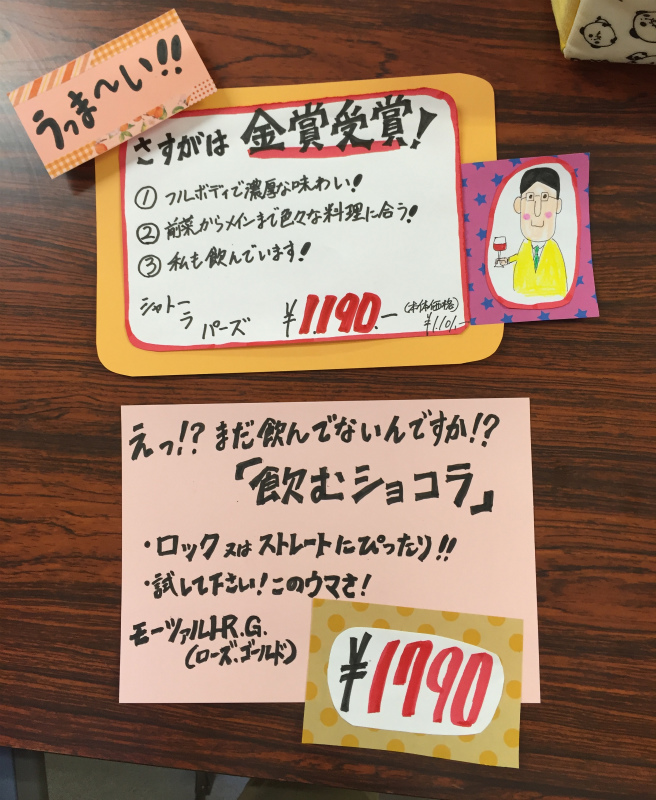 うっま〜い!!
さすがは 金賞受賞!
① フルボディで濃厚な味わい!
② 前菜からメインまで色々な料理に合う!
③ 私も飲んでいます!
シャトー
ラ
パーズ
¥1.190.-
(本体価格)
¥1.101.-
えっ!? まだ飲んでないんですか!?
「飲むショコラ」
・ロック 又は ストレートにぴったり!!
・試して下さい!このウマさ!
モーツァルトR.G.
(ローズ.ゴールド)
¥1790